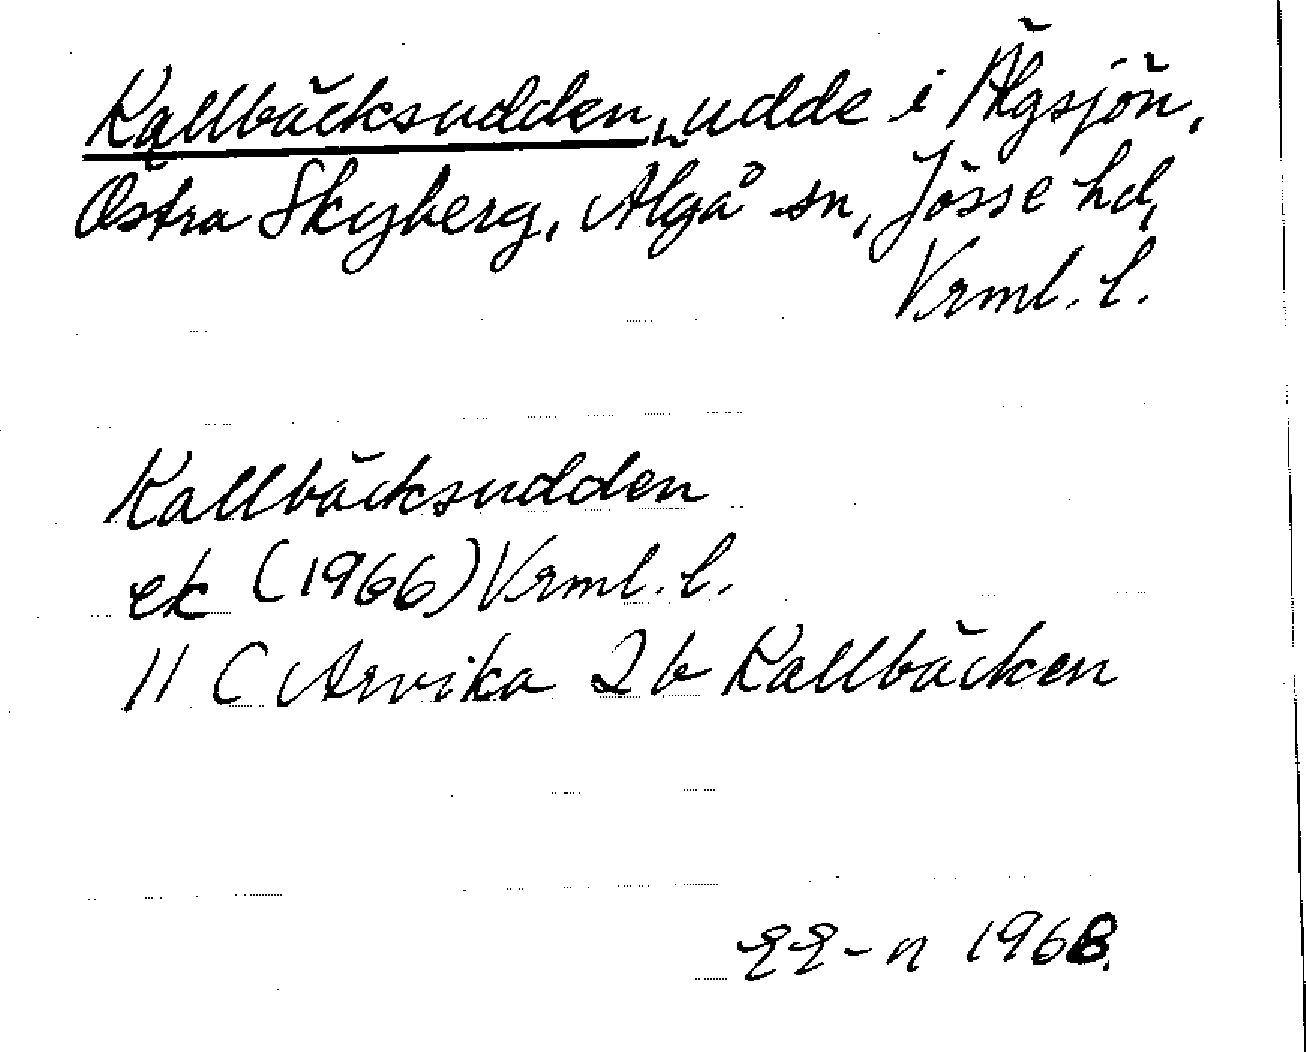 Kallbäcksudden, udde i Älgsjön,
Östra Skyberg, Älgå sn, Jösse hd,
Vrml. l.
Kallbäcksudden
ek (1966) Vrml. l.
11 C Arvika 2 b Kallbäcken
EE-n 1968.